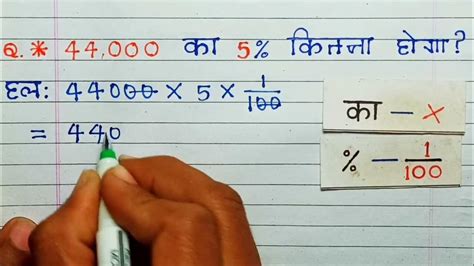 Q. * 44,000 का 5% कितना होगा?
हल: 44000 × 5 × 1/100
= 440
का — ×
% — 1/100